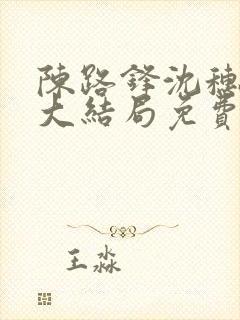 陳路鋒沈穗
大結局免費
王淼